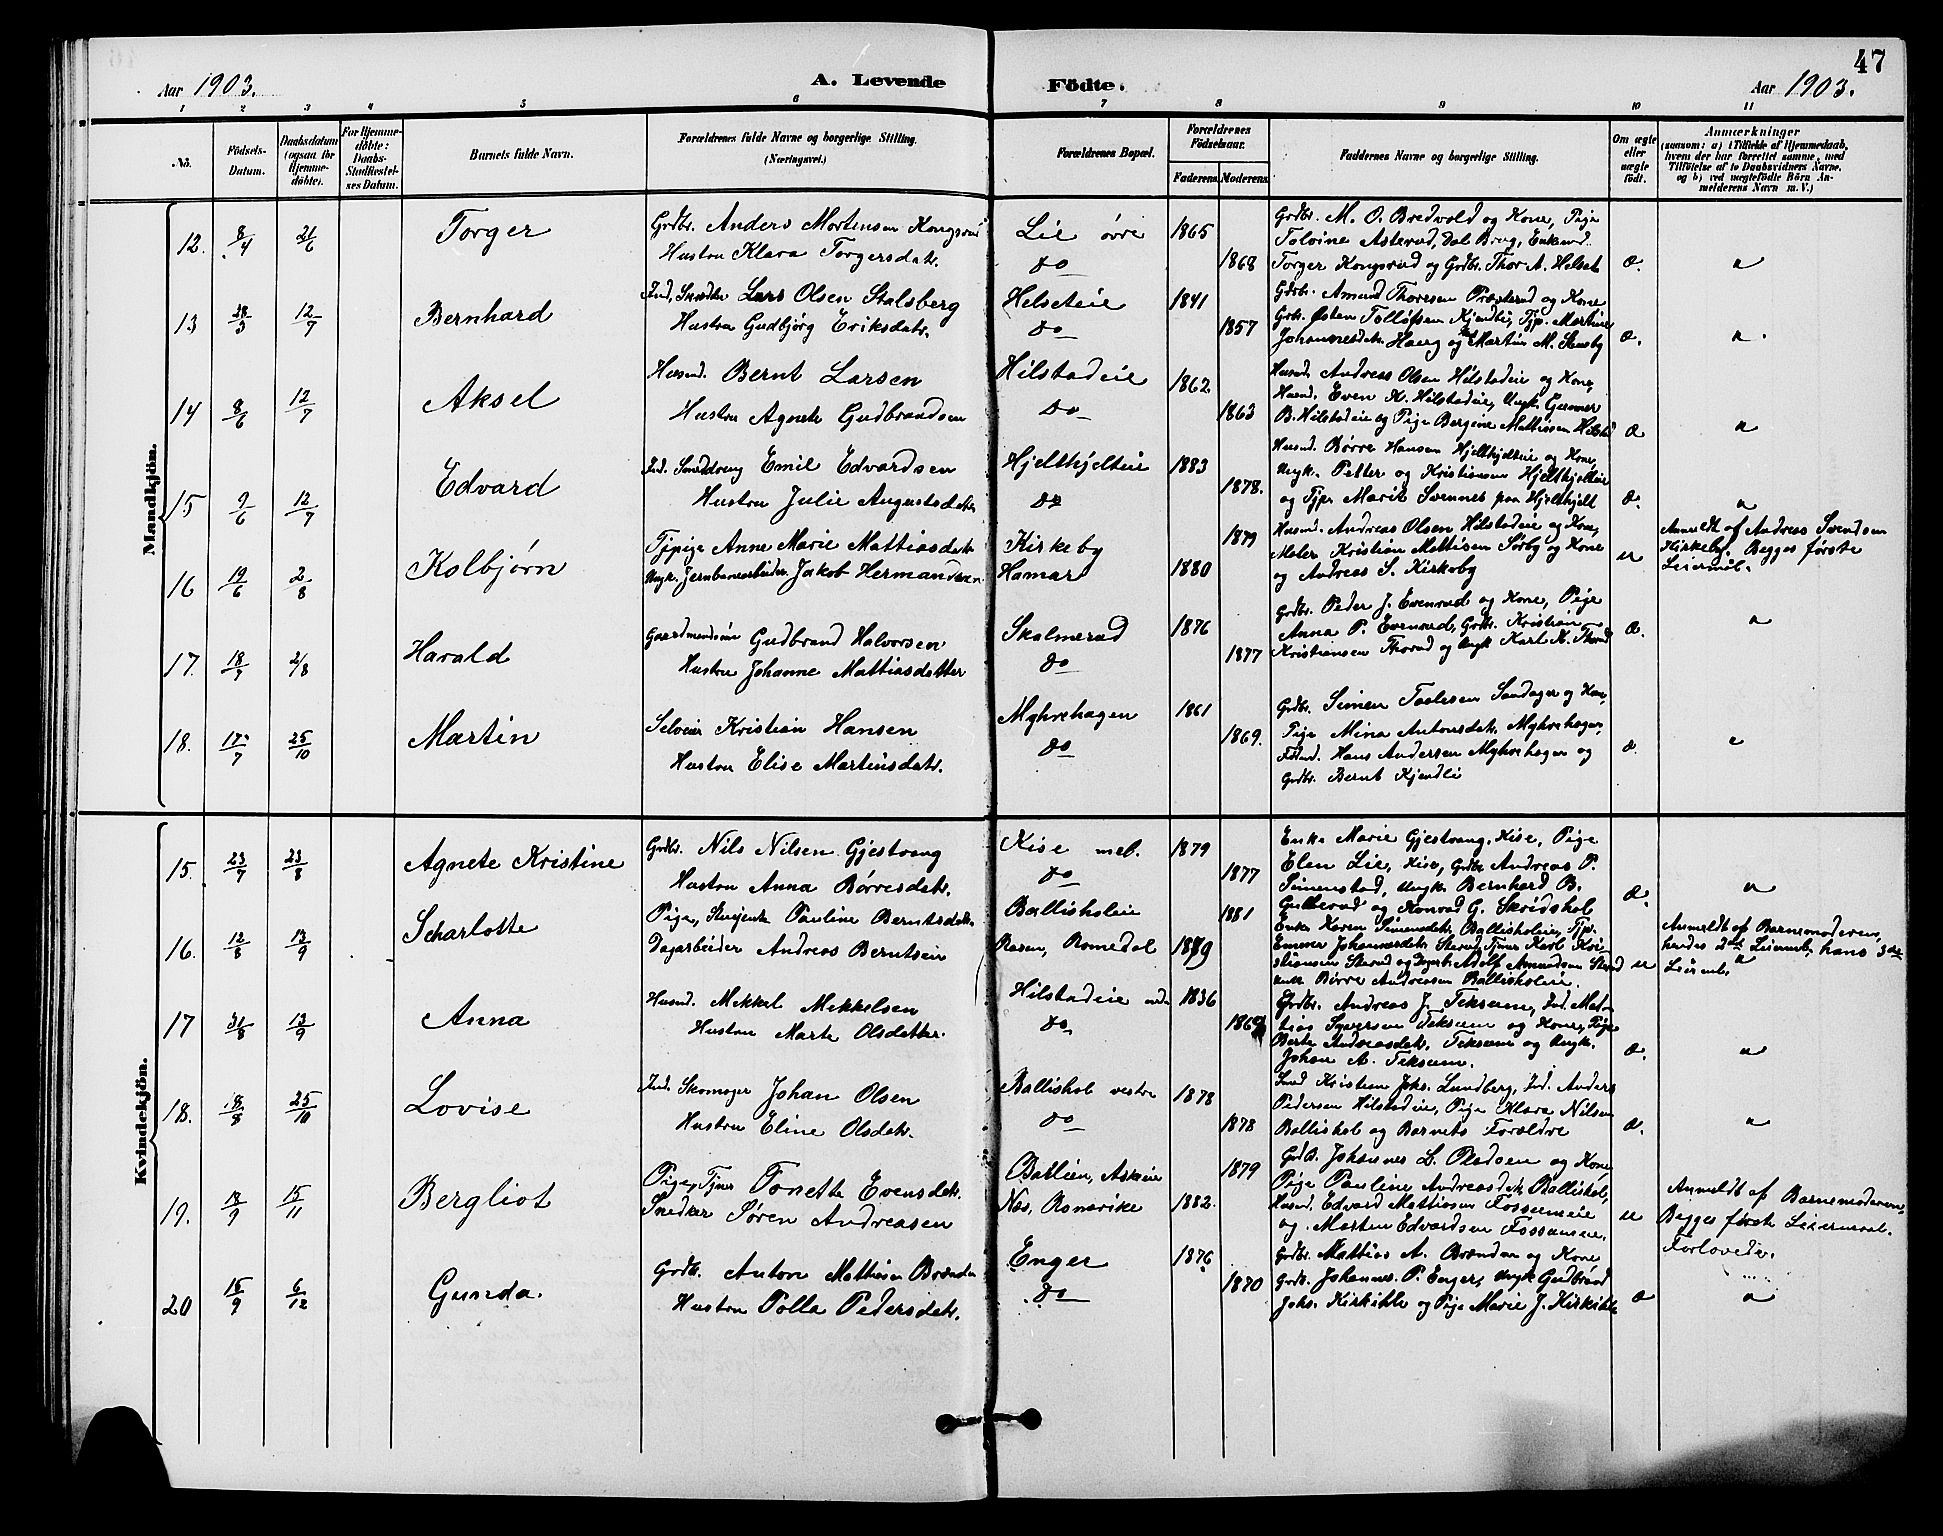 47
Aar 1903.
A. Levende
Födte.
Aar 1903.
1 2 3 4 5 6 7 8 9 10 11
No.
Födsels-Datum.
Daabsdatum (ogsaa for Hjemme-döbte).
For Hjemme-döbte: Daabs-Stadfæstel-ses Datum.
Barnets fulde Navn.
Forældrenes fulde Navne og borgerlige Stilling.
(Næringsvei.)
Forældrenes Bopæl.
Forældrenes Födselsaar.
Faderens. Moderens.
Faddernes Navne og borgerlig Stilling.
Om ægte eller uægte födt.
Anmærkninger
(saasom: a) i Tilfælde af Hjemmedaab, hvem der har forrettet samme, med Tilföielse af to Daabsvidners Navne, og b) ved uægtefödte Börn An-melderens Navn m. V.)
Mandkjön.
12. 8/4 21/6 Torger
Grdbr. Anders Mortensen Kongsrud
Hustru Klara Torgersdatr.
Lie övre
do
1865
1868
Grdbr. M. O. Bredvold og Kone, Pige
Tolvine Asterud, Dal Brug, Enkemd.
Torger Kongsrud og Grdbr. Thor A. Helset
æ.
"
13 28/3 12/7 Bernhard
Ind. Snedker Lars Olsen Stalsberg
Hustru Gudbjörg Eriksdatr.
Helseteie
do
1841
1857
Gdbr. Amund Thoresen Præsterud og Kone
Grbr. Østen Tollofsen Kjendlie, Tjp. Martine
Johannesdatr. Haug og Martin M. Stensby
æ.
"
14 8/6 12/7 Aksel
Husmd. Bernt Larsen
Hustru Agnete Gudbrandsen
Hilstadeie
do
1862
1863
Husmd. Andreas Olsen Hilstadeie og Kone,
Husmd. Even K. Hilstadeie, Ungk. Gunner
B. Hilstadeie og Pige Bergine Mathisen Hilstad
æ
"
15 9/6 12/7 Edvard
Ind. Smeddreng Emil Edvardsen
Hustru Julie Augustsdatr
Hjelthjelteie
do
1883
1878.
Husmd. Børre Hansen Hjelthjelteie og Kone,
Ungk. Petter og Kristiansen Hjelthjelteie
og Tjp. Marit Svennes paa Hjelthjelt
æ.
"
16 19/6 2/8 Kolbjørn
Tjpige Anne Marie Mattiasdatr
Ungk. Jernbanearbeider Jakob Hermandsen
Kirkeby
Hamar
1879
1880
Husmd. Andreas Olsen Hilstadeie og Kone,
Maler Kristian Mattisen Sörby og Kone
og Andreas S. Kirkeby
u
Anmeldt af Andreas Svendsen
Kirkeby. Begges første
Leiermål.
17. 18/7 2/8 Harald
Gaardmandssön Gudbrand Halvorsen
Hustru Johanne Mattiasdatter
Skalmerud
do
1876
1877
Grdbr. Peder J. Evenrud og Kone, Pige
Anna P. Evenrud, Grdbr. Kristian
Kristiansen Thorud og Ungk Karl K. Thorud
æ.
"
18. 17/7 25/10 Martin
Selveier Kristian Hansen
Hustru Elise Martinsdatr.
Myhrehagen
do
1861
1869.
Grdbr. Simen Taalesen Sandager og Kone,
Pige Mina Antonsdatr. Myhrehagen,
Hans Andersen Myhrehagen og
Grdbr. Bernt Kjendli
æ.
"
Kvindekjön.
15. 23/7 23/8 Agnete Kristine
Grdbr. Nils Nilsen Gjestvang
Hustru Anna Børresdatr.
Kise mel.
do
1879
1877
Enke Marie Gjestvang, Kise, Pige
Elen Lie, Kise, Grdbr Andreas P.
Simenstad, Ungk. Bernhard B.
Gulterud og Konrad G. Skredshol
æ.
"
16. 12/8 13/9 Scharlotte
Pige, Stuejente Pauline Berntsdatr
Dagarbeider Andreas Berntsen
Ballisholeie
Romedal
1881
1879
Enke Karen Simensdatr, Ballisholeie, Tjp.
Emma Johannesdatr. Sterud, Tjener Karl Kri-
stiansen Sterud og Dagarb. Adolf Amundsen Sterud
Ungk Börre Andreassen Ballisholeie.
u
Anmeldt af Barnemoderen,
hendes 2det Leiermål, hans 3die
Leiermål.
17 31/8 13/9 Anna
Husmd. Mekkel Mekkelsen
Hustru Marte Olsdatter.
Hilstadeie
do
1836
Grdbr. Andreas J. Teksum, Ind. Mat-
tias Syversen Teksum og Kone, Pige
Berte Andreasdatr. Teksum og Ungk.
Johan A. Teksum.
æ.
"
18. 18/8 25/10 Lovise
Ind. Skomager Johan Olsen
Hustru Eline Olsdatr.
Ballishol vestre
do
1878
1878
Ind Kristian Johs. Lundberg, Ind. Anders
Pedersen Hilstadeie, Pige Klara Nilsen
Ballishol og Barnets Forældre
æ.
"
19. 13/9 15/11 Bergliot
Pige, Tjener Tonette Evensdatr.
Snedker Søren Andreasen
Batlien, Askeie
Nes, Romerike
1879
1882.
Grdb. Johannes L. Olsen og Kone
Pige Pauline Andreasdatr Ballishol,
Husmd. Edvard Mattiasen Fossumeie
og Morten Edvardsen Fossumeie.
u
Anmeldt af Barnemoderen,
Begges første Leiermaal.
Forlovede.
20 15/9 6/12 Gunda.
Grdb. Anton Mathisen Brænden
Hustru Polla Pedersdatr.
Enger
do
1876
1870
Grdbr. Mattias A. Brænden og Kone
Grdb. Johannes P. Enger, Ungk Gudbrand
Johs. Kirkihle og Pige Marie J. Kirkihle
æ
"